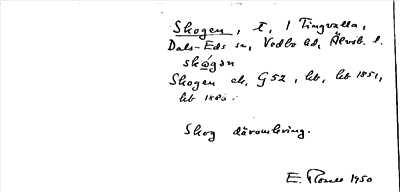 Skogen, t, 1 Tingvalla,
Dals-Eds sn, Vedbo hd, Älvsb. l.
skógən
Skogen ek. G 52, hk, hk 1851,
hk 1880.
Skog däromkring.
E. 1950